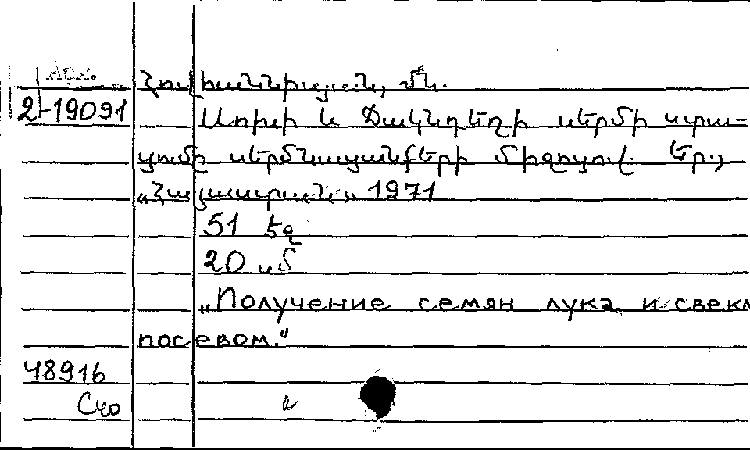 Հովհաննիսյան, Մ.
2-19091
Սոխի և Ճակնդեղի սերմի ստա-
ցումը սերմնացանքերի միջոցով. Եր.,
„Հայաստան„ 1971
51 էջ
20 սմ
„Получение семян лука и свекл
посевом."
48916